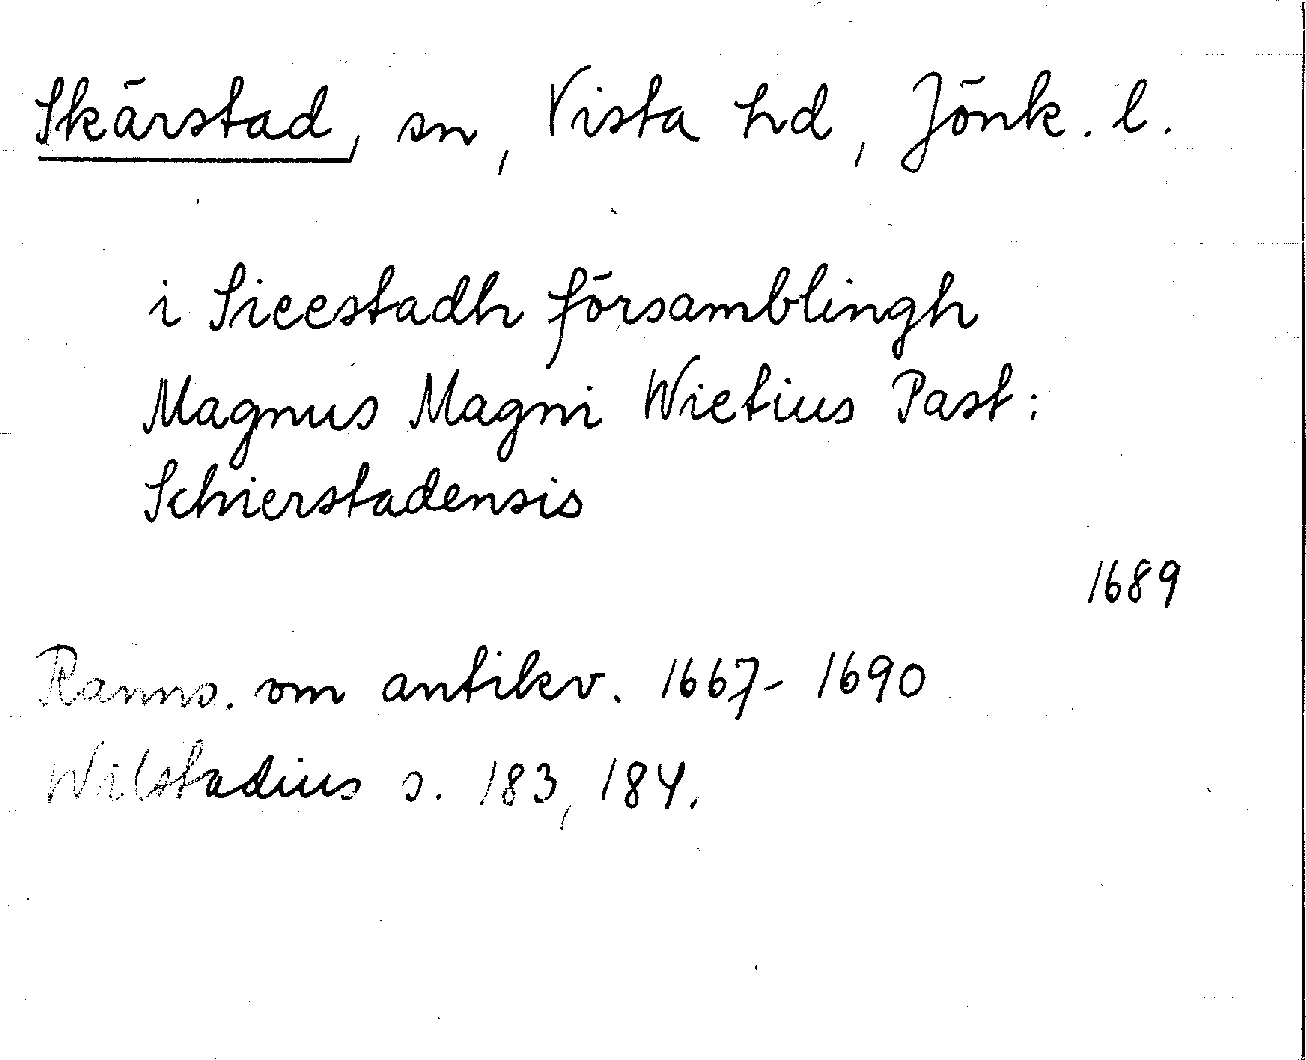 Skärstad, sn, Vista hd, Jönk. l.
i Sieestadh församblingh
Magnus Magni Wietius Past:
Schierstadensis
1689
Ranns. om antikv. 1667-1690
Wilstadius s. 183, 184.